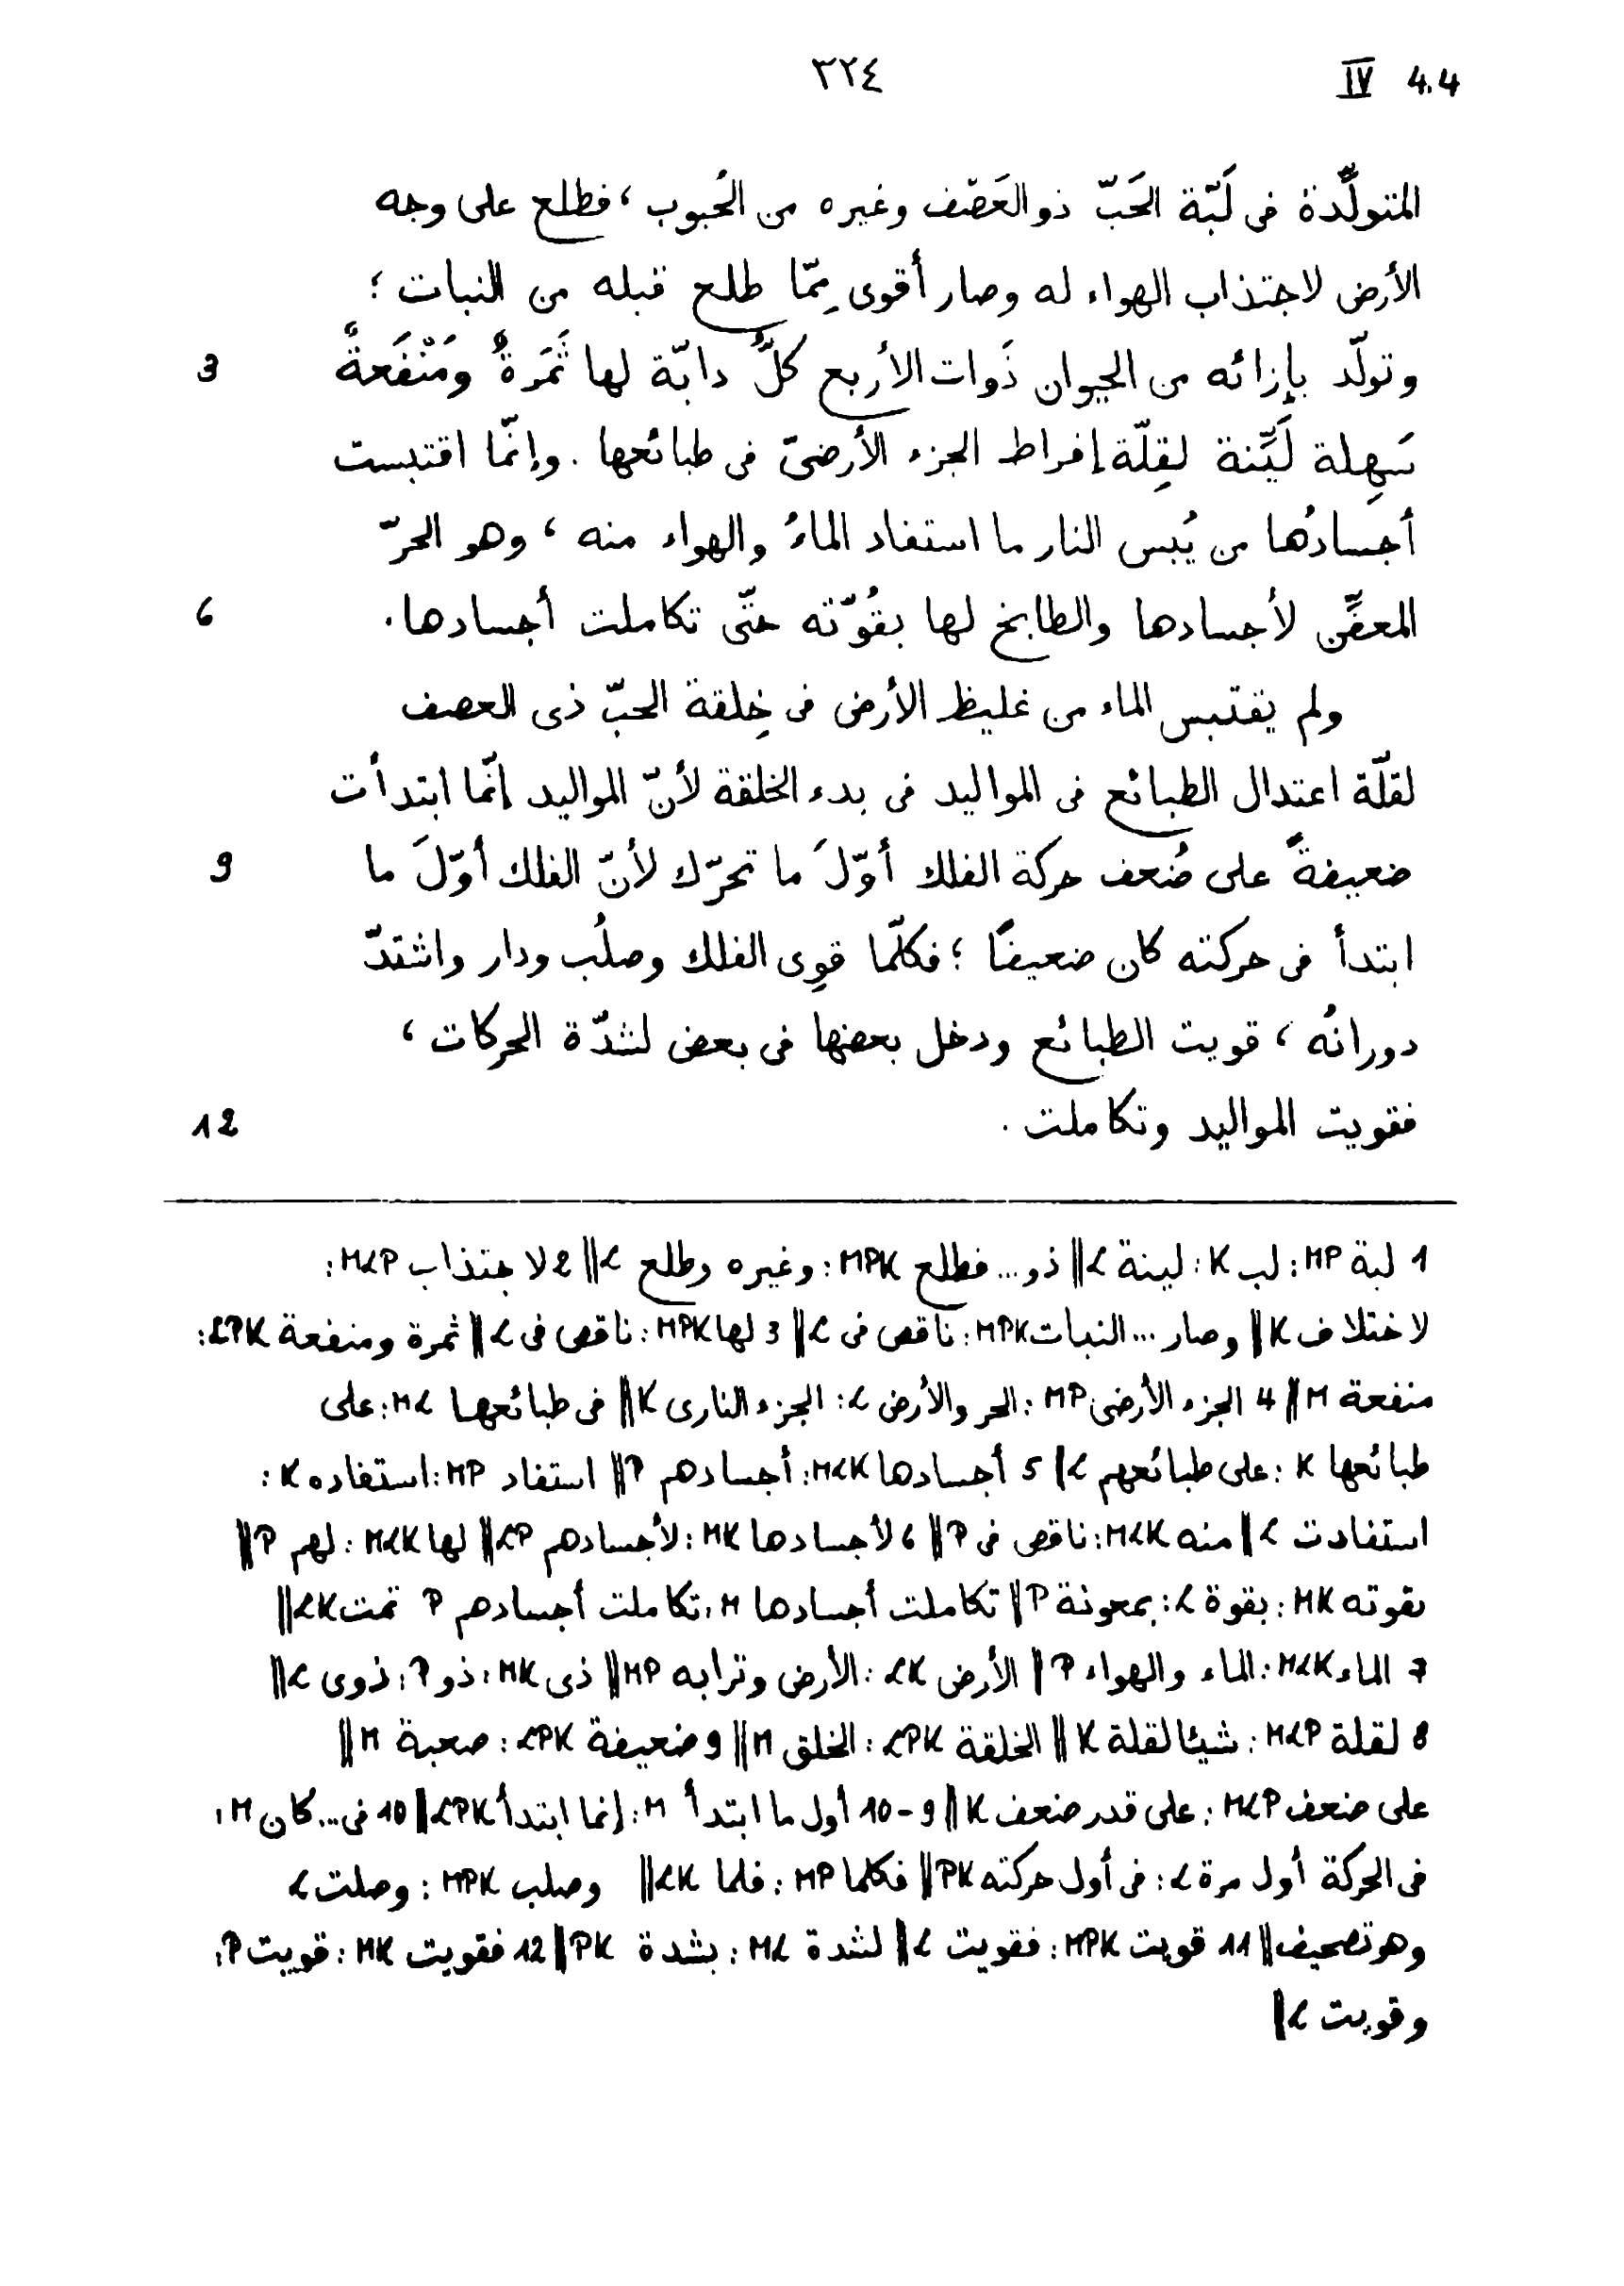 ٣٢٤
IV 4.4
المتولِّدة فى لَبّة الحَبّ ذو العَصْف وغيره من الحُبوب ، فطلع على وجه
الأرض لاجتذاب الهواء له وصار أقوى مِمّا طلع قبله من النبات ؛
وتولّد بإزائه من الحيوان ذَوات الأربع كلُّ دابّة لها ثَمَرةٌ ومَنْفَعةٌ 3
سَهِلة لَيِّنة لقِلّة إفراط الجزء الأرضىّ فى طبائعها . وإنّما اقتبست
أجسادُها من يُبس النار ما استفاد الماءُ والهواء منه ، وهو الحرّ
المعفِّن لأجسادها والطابخ لها بقُوّته حتّى تكاملت أجسادها . 6
ولم يقتبس الماء من غليظ الأرض فى خِلقة الحبّ ذى العصف
لقلّة اعتدال الطبائع فى المواليد فى بدء الخلقة لأنّ المواليد إنّما ابتدأت
ضعيفةً على ضُعف حركة الفلك أوّلَ ما تحرّك لأنّ الفلك أوّلَ ما 9
ابتدأ فى حركته كان ضعيفًا ؛ فكلّما قوِى الفلك وصلُب ودار واشتدّ
دورانُه ، قويت الطبائع ودخل بعضها فى بعض لشدّة الحركات ،
فقويت المواليد وتكاملت . 12
1 لبة MP : لب K : لينة L || ذو ... فطلع MPK : وغيره وطلع L || 2 لاجتذاب MLP :
لاختلاف K || وصار ... النبات MPK : ناقص فى L || 3 لها MPK : ناقص فى L || ثمرة ومنفعة LPK :
منفعة M || 4 الجزء الأرضى MP : الحر والأرض L : الجزء النارى K || فى طبائعها ML : على
طبائعها K : على طبائعهم L || 5 أجسادها MLK : أجسادهم P || استفاد MP : استفاده K :
استفادت L || منه MLK : ناقص فى P || 6 لأجسادها MK : لأجسادهم LP || لها MLK : لهم P ||
بقوته MK : بقوة L : بمعونة P || تكاملت أجسادها M : تكاملت أجسادهم P تمت LK ||
7 الماء MLK : الماء والهواء P || الأرض LK : الأرض وترابه MP || ذى MK : ذو P : ذوى L ||
8 لقلة MLP : شيئا لقلة K || الخلقة LPK : الخلق M || 9 ضعيفة LPK : صعبة M ||
على ضعف MLP : على قدر ضعف K || 9-10 أول ما ابتدأ M : إنما ابتدأ LPK || 10 فى ... كان M :
فى الحركة أول مرة L : فى أول حركته PK || فكلما MP : فلما LK || وصلب MPK : وصلت L
وهو تصحيف || 11 قويت MPK : فقويت L || لشدة ML : بشدة PK || 12 فقويت MK : قويت P :
وقويت L ||